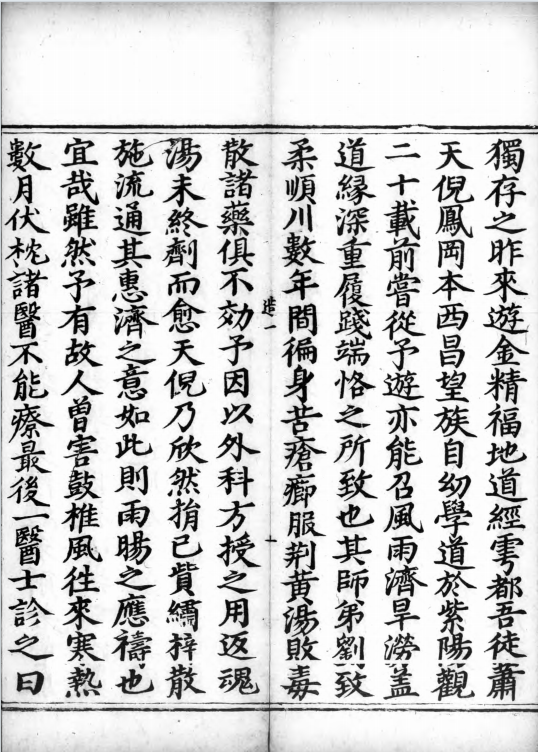 獨存之昨來遊金精福地道經雩都吾徒蕭
天倪鳳岡本西昌望族自幼學道於紫陽觀
二十載前嘗從予遊亦能召風雨濟旱澇蓋
道緣深重履踐端恪之所致也其師弟劉致
柔順川數年間徧身苦瘡癤服荆黃湯敗毒
散諸藥俱不効予因以外科方授之用返魂
湯未終劑而愈天倪乃欣然捐已貲繡梓散
施流通其惠濟之意如此則雨暘之應禱也
宜哉雖然予有故人曾害鼓椎風往來寒熱
數月伏枕諸醫不能療最後一醫士診之曰